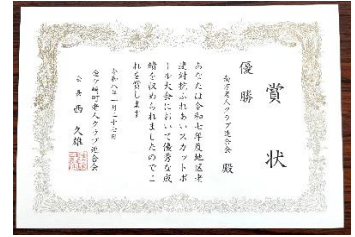 賞状
優勝
南方老人クラブ連合会 殿
あなたは令和七年度地区老
連対抗ふれあいスカットボ
ール大会において優秀な成
績を収められましたのでこ
れを賞します
令和八年一月二十七日
金ヶ崎町老人クラブ連合会
会長 西 久雄